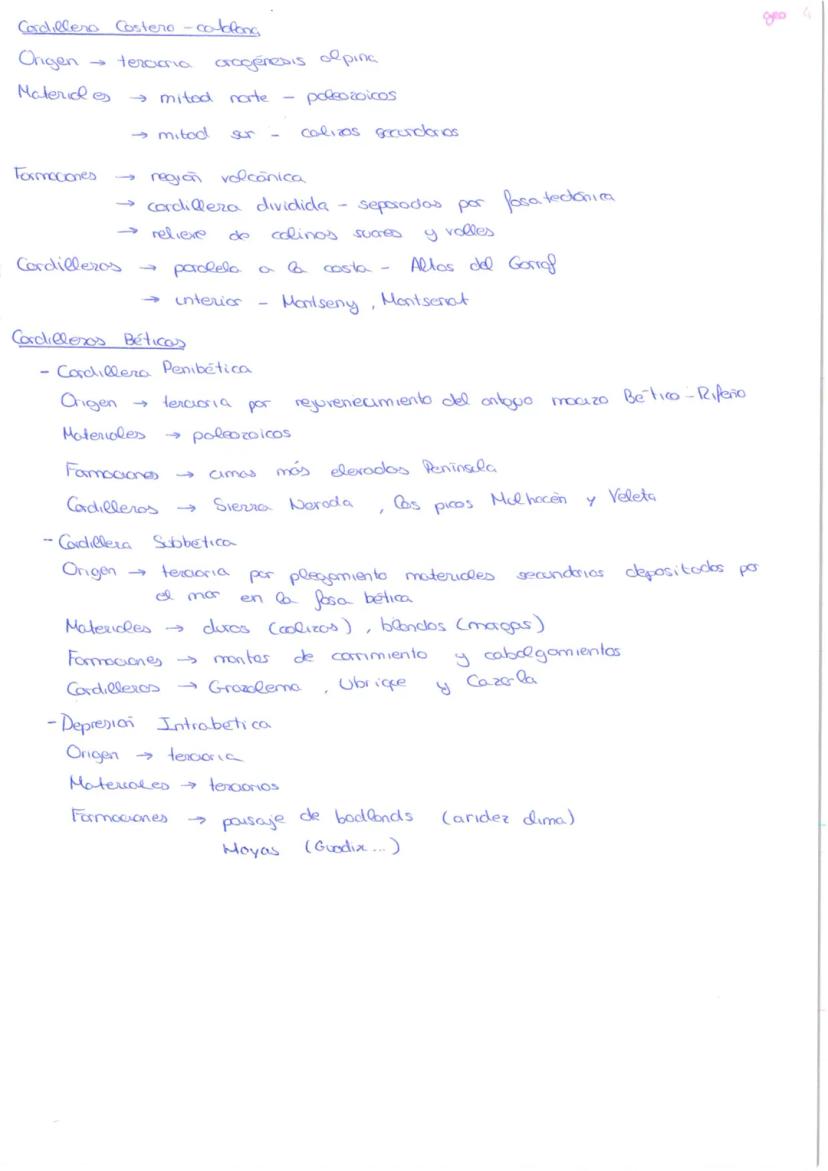 geo 4
Cordillera Costero-catalana
Origen → terciaria orogénesis alpina
Materiales → mitad norte - paleozoicos
→ mitad sur - calizas secundarias
Formaciones → región volcánica
→ cordillera dividida - separadas por fosa tectónica
→ relieve de colinas suaves y valles
Cordilleras → paralela a la costa - Altos del Garraf
→ interior - Montseny, Montserrat
Cordilleras Béticas
- Cordillera Penibética
Origen → terciaria por rejuvenecimiento del antiguo macizo Bético-Rifeño
Materiales → paleozoicos
Formaciones → cimas más elevadas Península
Cordilleras → Sierra Nevada, los picos Mulhacén y Veleta
- Cordillera Subbética
Origen → terciaria por plegamiento materiales secundarios depositados por
el mar en la fosa bética
Materiales → duros (calizas), blandos (margas)
Formaciones → mantos de corrimiento y cabalgamientos
Cordilleras → Grazalema, Ubrique y Cazorla
- Depresión Intrabética
Origen → terciaria
Materiales → terciarios
Formaciones → paisaje de badlands (aridez clima)
Hoyas (Guadix...)